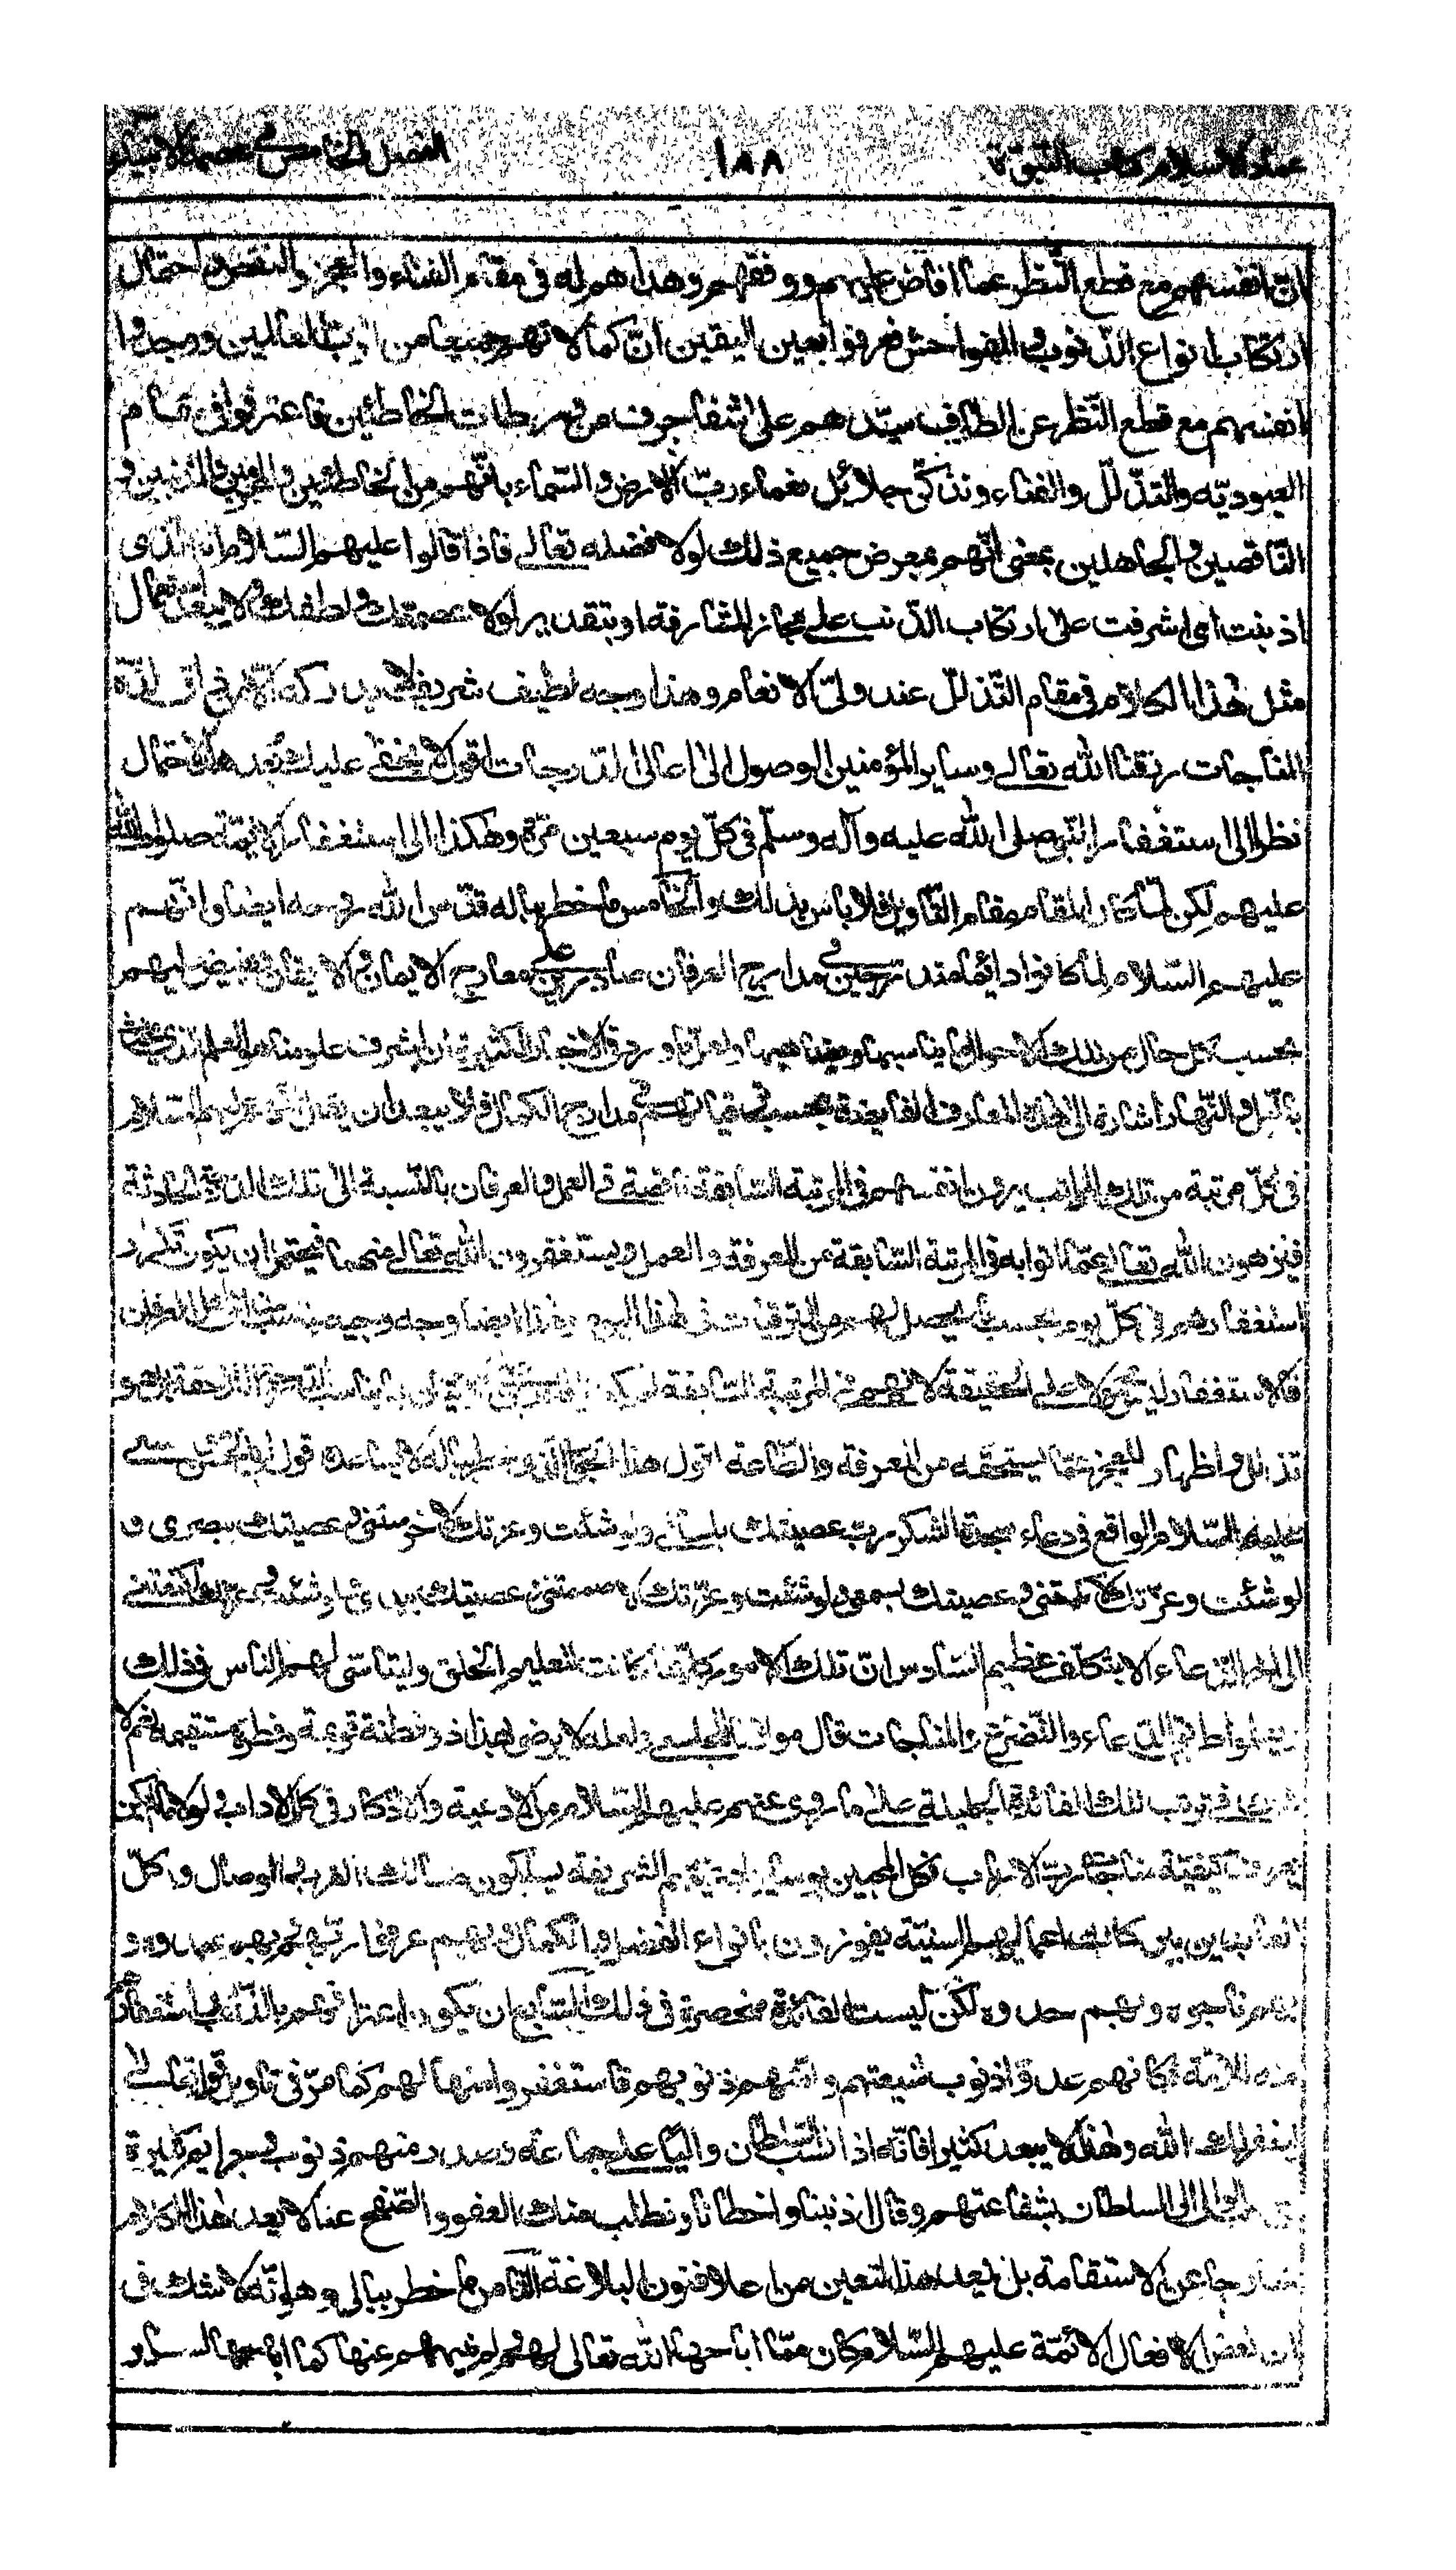 عماد الاسلام كتاب النبوّة ١٥٨ الفصل الخامس فى عصمة الانبياء
انّ انفسهم مع قطع النّظر عما افاض عليهم ووفقهم وهذا هم له فى مقام الفناء والعجز والنقص و احتمال
ارتكاب انواع الذنوب و الفواحش فعرفوا بعين اليقين انّ كمالاتهم جميعا من ربّ العالمين ووجدوا
انفسهم مع قطع النّظر عن الطاف سيّدهم على شفا جرف من ورطات الخاطئين فاعترفوا فى مقام
العبوديّة والتذلّل والفناء وتذكّر جلائل نعماء ربّ الارض والسّماء بانّهم من الخاطئين و المذنبين و
النّاقصين والجاهلين بمعنى انّهم بمعرض جميع ذلك لولا فضله تعالى فاذا قالوا عليهم السّلام انا الذى
اذنبت اى اشرفت على ارتكاب الذّنب على مجاز المشارفة او بتقدير لولا عصمتك ولطفك ولا يبعد استعمال
مثل هٰذا الكلام فى مقام التّذلّل عند ولىّ الانعام وهذا وجه لطيف شريف يدركه من ذاق لذّة
المناجات رزقنا الله تعالى وساير المؤمنين الوصول الى اعالى الدّرجات اقول لا يخفى عليك بعد هذا الاحتمال
نظرا الى استغفار النّبى صلى الله عليه وآله وسلّم فى كلّ يوم سبعين مرّة وهكذا الى استغفار الائمّة صلوات الله
عليهم لكن لمّا كان المقام مقام التّأويل فلا باس بذلك والخامس ما خطر بباله قدّس الله روحه ايضا وانّهم
عليهم السّلام لما كانوا دائما متدرّجين فى مدارج العرفان صاعدين على معارج الايمان و الايقان و يفيض اليهم
بحسب كل حال من تلك الاحوال ما يناسبها ولهذا ورد فى الاخبار الكثيرة ان اشرف علومنا هو العلم الذى يحدث
بالّليل و النّهار اشارة الى هٰذه المعارف الفايضة بحسب ترقياتهم فى مدارج الكمال فلا يبعد ان يقال انّهم عليهم السّلام
فى كلّ مرتبة من تلك المراتب يرون انفسهم فى المرتبة السّابقة ناقصة فى العمل والعرفان بالنّسبة الى تلك المرتبة الحادثة
فينزهون الله تعالى عمّا اتوا به فى المرتبة السّابقة من المعرفة والعمل ويستغفرون الله تعالى منهما فيحتمل ان يكون تكرار
استغفارهم فى كلّ يوم بحسب ما يحصل لهم من الترقيات فى هٰذا اليوم وهٰذا ايضا وجه وجيه يناسب اذواق اهل العرفان
فالاستغفار ليس على الحقيقة لانهم فى المرتبة السّابقة لم يكونوا بل هو
تذلل و اظهار للعجز عمّا يستحقّه من المعرفة والطّاعة اقول هذا الوجه الذى خطر بباله لا يساعده قول ابى الحسن موسى
عليه السّلام الواقع فى دعاء سجدة الشكر ربّ عصيتك بلسانى ولو شئت وعزتك لاخرستنى و عصيتك ببصرى و
لو شئت وعزّتك لاكمهتنى وعصيتك بسمعى ولو شئت وعزّتك لاصممتنى وعصيتك بيدى ولو شئت وعزّتك لكنعتنى
الى اخر الدّعاء الا بتكلّف عظيم السّادس انّ تلك الامور كلّها كانت لتعليم الخلق وليتاسّى لهم الناس فى ذلك
فيداوموا فى الدّعاء والتّضرّع والمناجات قال مولانا المجلسى ولعله لا يرضى بهذا ذو فطنة قويمة وفطرة مستقيمة نعم لا
شك فى ترتب تلك الفائدة الجليلة على ما روى عنهم عليهم السّلام من الادعية والاذكار فى كل الاداب و لولاهم لم نكن
نعرف كيفيّة مناجاة ربّ الارباب فكل المحبين بوسيلة ادعيتهم الشريفة يسلكون مسالك القرب و الوصال وكلّ
العابدين ببركات اعمالهم السنيّة يفوزون بانواع الفضل والكمال و بهم عرفوا ربّهم و بهم عبدوه و
بهم ناجوه وبهم حمدوه ولكن ليست الفائدة منحصرة فى ذلك السّابع ان يكون اعترافهم بالذّنوب استغفارا
منه للامّة فكانهم عدوا ذنوب شيعتهم وامّتهم ذنوبهم فاستغفروا منها لهم كما مرّ فى تاويل قوله تعالى
ليغفر لك الله وهٰذا لا يبعد كثيرا فانّه اذا نصب السّلطان واليا على جماعة وصدر منهم ذنوب وجرايم كثيرة
الوالى الى السلطان بشفاعتهم وقال اذنبنا واخطأنا ونطلب منك العفو والصّفح عنا لا يعد هٰذا الكلام
خارجا عن الاستقامة بل يعد هذا التعبير من اعلا فنون البلاغة الثّامن ما خطر ببالى و هو انّه لا شك فى
ان بعض الافعال الائمّة عليهم السّلام كان ممّا اباحها الله تعالى لهم و لم ينههم عنها كما اباحها لسائر